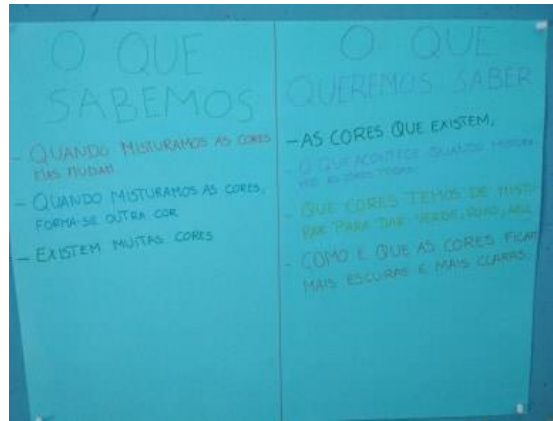 O QUE
SABEMOS
- QUANDO MISTURAMOS AS CORES
ELAS MUDAM
- QUANDO MISTURAMOS AS CORES,
FORMA-SE OUTRA COR
- EXISTEM MUITAS CORES
O QUE
QUEREMOS SABER
- AS CORES QUE EXISTEM,
- O QUE ACONTECE QUANDO MISTURA
AS CORES TODAS
- QUE CORES TEMOS DE MISTU
RAR PARA DAR VERDE, ROXO, AZUL
- COMO É QUE AS CORES FICAM
MAIS ESCURAS E MAIS CLARAS.